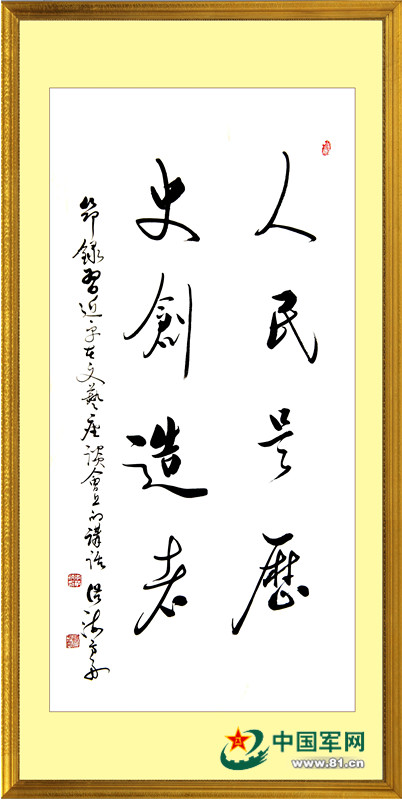 人民是歷
史創造者
節錄習近平在文藝座談會上的講話
中国军网
www.81.cn